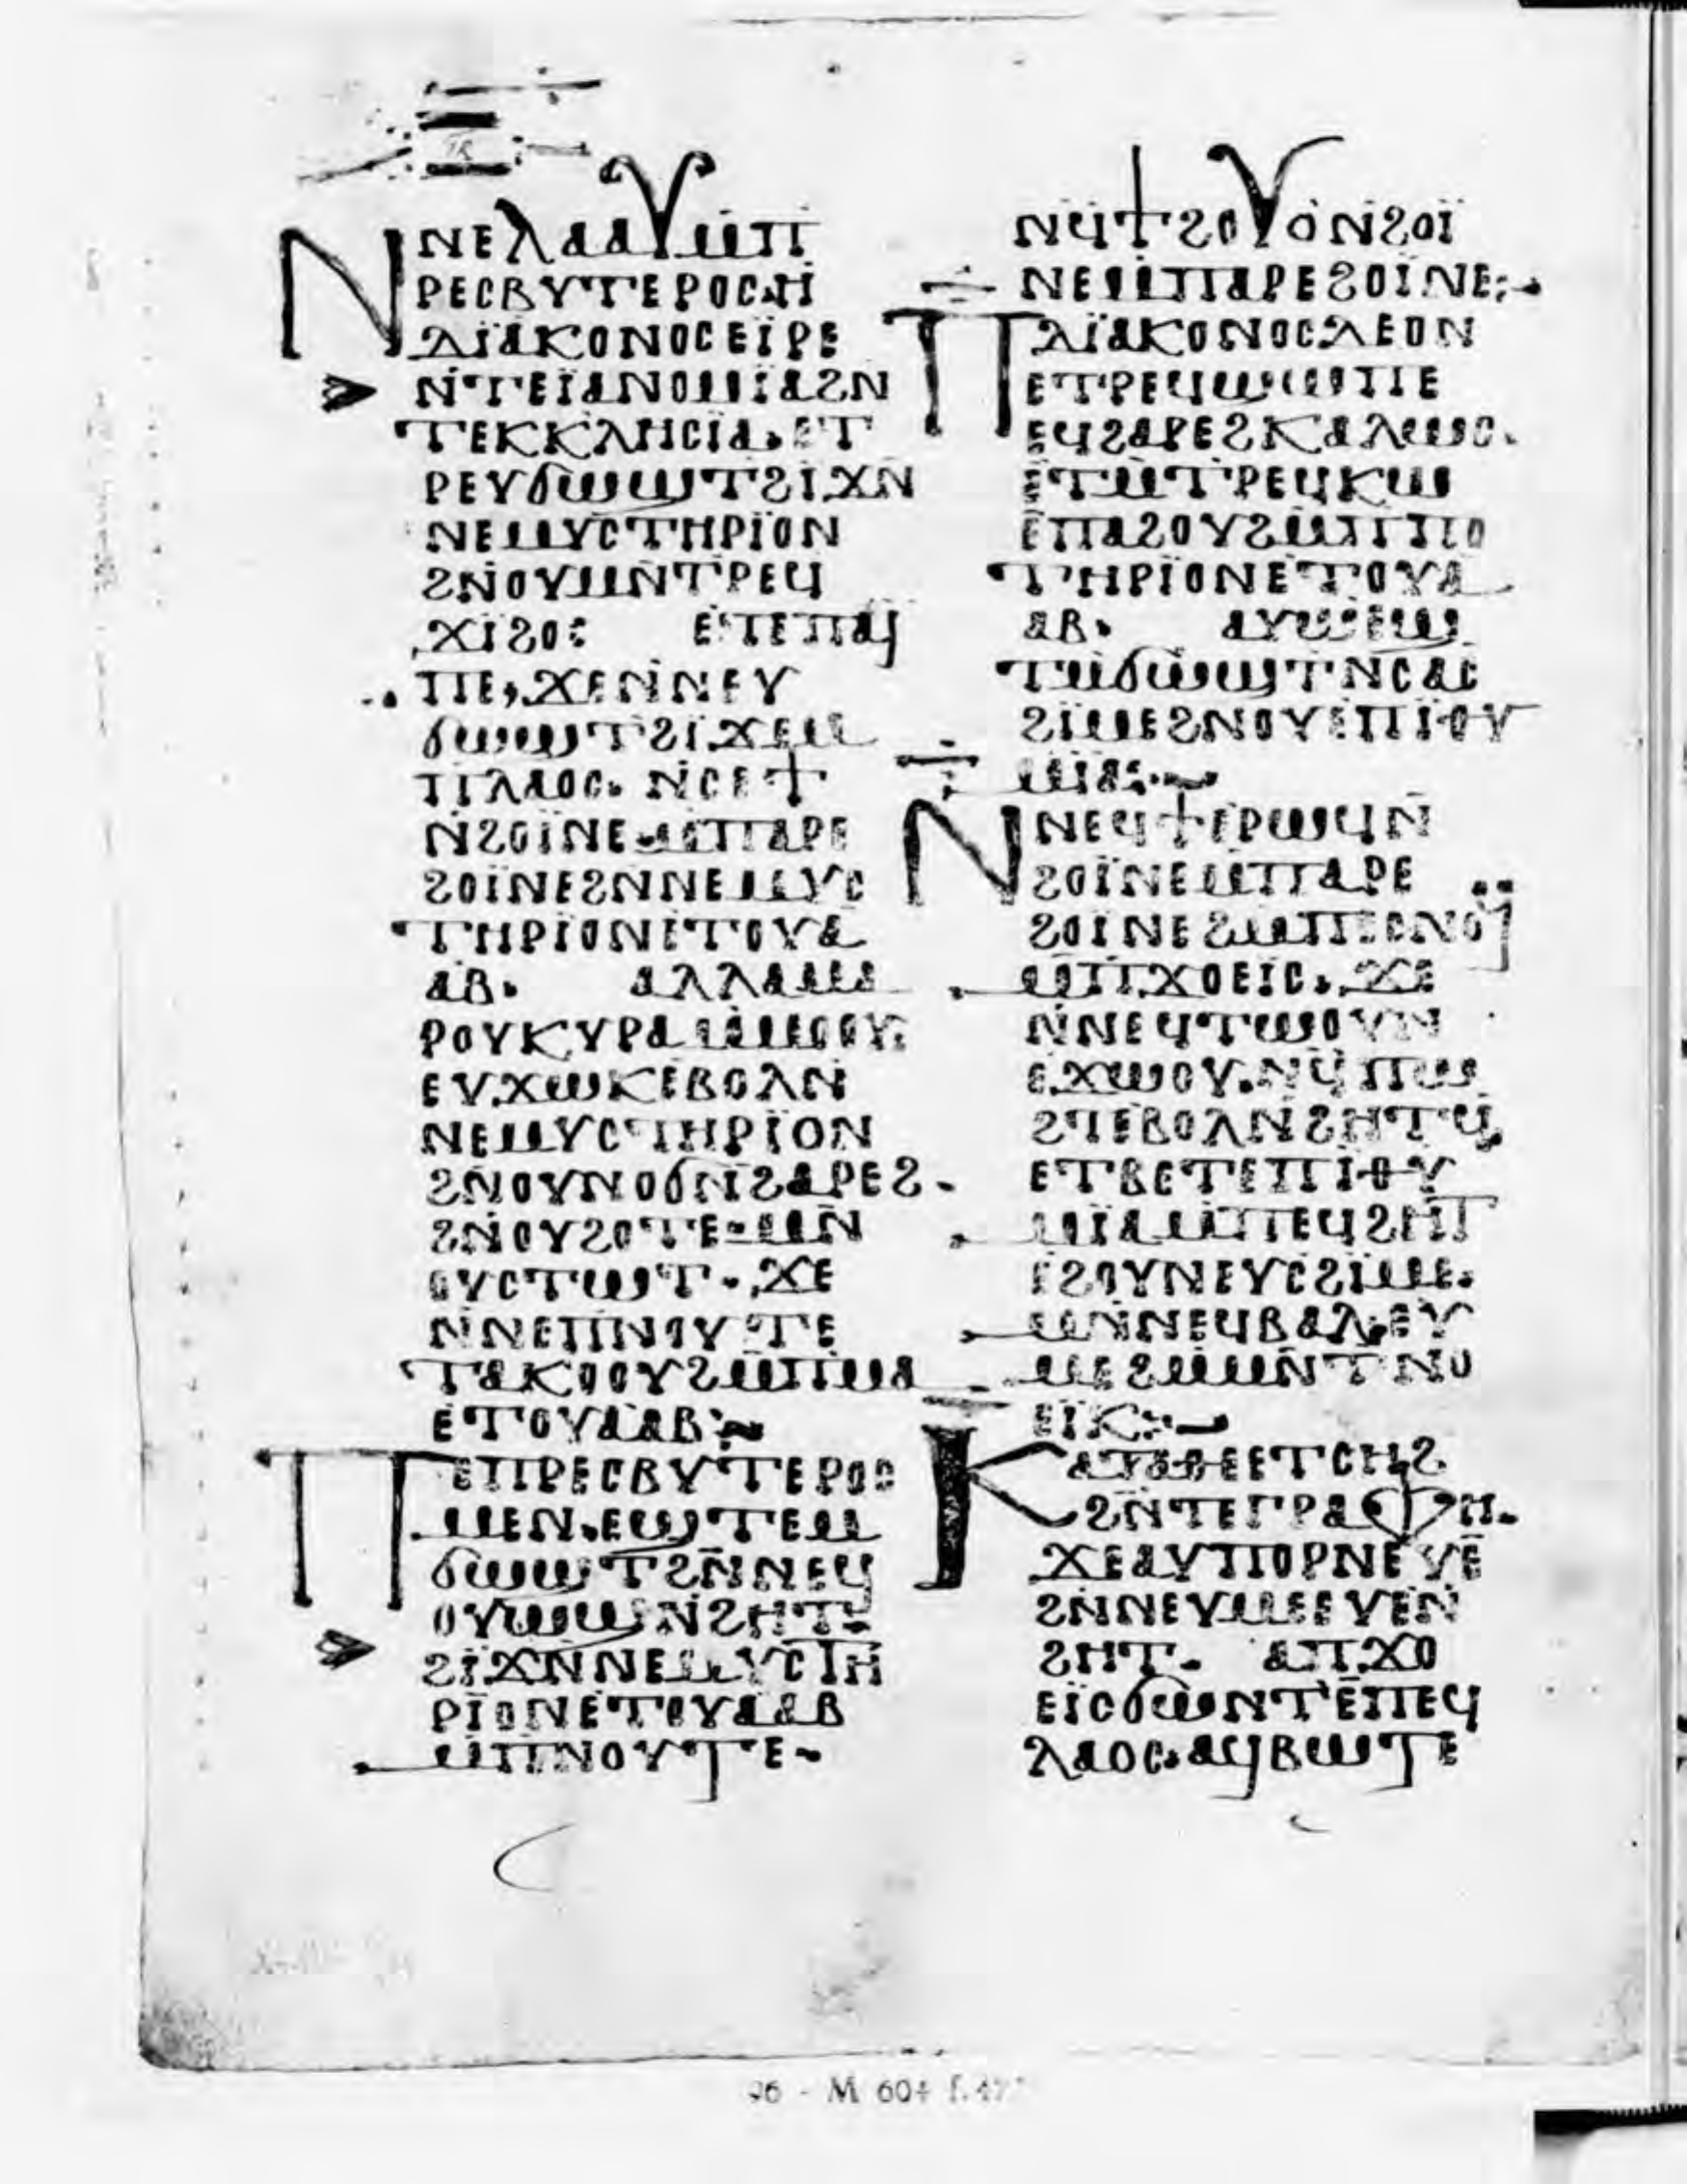 ⲛⲛⲉⲗⲁⲁⲩⲙ̇ⲡ
ⲣⲉⲥⲃⲩⲧⲉⲣⲟⲥ·ⲏ̇
ⲇⲓ̈ⲁⲕⲟⲛⲟⲥⲉⲓ̈ⲣⲉ
ⲛ̇ⲧⲉⲓ̈ⲁⲛⲟⲙⲓ̈ⲁϩⲛ
ⲧⲉⲕⲕⲗⲏⲥⲓ̈ⲁ·ⲉ̇ⲧ
ⲣⲉⲩϭⲱϣⲧϩⲓϫⲛ̄
ⲛⲉⲙⲩⲥⲧⲏⲣⲓ̈ⲟⲛ
ϩⲛ̇ⲟⲩⲙⲛ̄ⲧⲣⲉϥ
ϫⲓ̈ϩⲟ: ⲉ̇ⲧⲉⲡⲁⲓ̈
ⲡⲉ,ϫⲉⲛ̇ⲛⲉⲩ
ϭⲱϣⲧϩⲓ̈ϫⲉⲙ
ⲡⲗⲁⲟⲥ· ⲛ̇ⲥⲉϯ
ⲛ̇ϩⲟⲓ̈ⲛⲉ·ⲙ̇ⲡⲁⲣⲉ
ϩⲟⲓ̈ⲛⲉϩⲛⲛⲉⲙⲩⲥ
ⲧⲏⲣⲓ̈ⲟⲛⲉ̇ⲧⲟⲩⲁ
ⲁⲃ· ⲁⲗⲗⲁⲙⲁ
ⲣⲟⲩⲕⲩⲣⲁ ⲙ̇ⲙⲟⲟⲩ:
ⲉⲩϫⲱⲕⲉ̇ⲃⲟⲗⲛ̇
ⲛⲉⲙⲩⲥⲧⲏⲣⲓ̈ⲟⲛ
ϩⲛ̄ⲟⲩⲛⲟϭⲛ̇ϩⲁⲣⲉϩ·
ϩⲛ̇ⲟⲩϩⲟⲧⲉ·ⲙⲛ̄
ⲟⲩⲥⲧⲱⲧ·ϫⲉ
ⲛ̇ⲛⲉⲡⲛⲟⲩⲧⲉ
ⲧⲁⲕⲟⲟⲩϩⲙ̄ⲡⲙⲁ
ⲉ̇ⲧⲟⲩⲁⲁⲃ:~
ⲡⲉⲡⲣⲉⲥⲃⲩⲧⲉⲣⲟⲥ
ⲙⲉⲛ·ⲉϣⲧⲉⲙ
ϭⲱϣⲧϩⲛ̄ⲛⲉϥ
ⲟⲩⲱϣⲛ̇ϩⲏⲧ·
ϩⲓ̈ϫⲛ̄ⲛⲉⲙⲩⲥⲧⲏ
ⲣⲓ̈ⲟⲛⲉ̇ⲧⲟⲩⲁⲁⲃ
ⲙ̇ⲡⲛⲟⲩⲧⲉ·
ⲛϥ̇ϯϩⲟⲩⲟ̇ⲛ̇ϩⲟⲓ̈
ⲛⲉⲙ̇ⲡⲁⲣⲉϩⲟⲓ̈ⲛⲉ:·
ⲡⲇⲓ̈ⲁⲕⲟⲛⲟⲥⲇⲉⲟⲛ
ⲉⲧⲣⲉϥϣⲱⲡⲉ
ⲉϥϩⲁⲣⲉϩⲕⲁⲗⲱⲥ·
ⲉ̇ⲧⲙ̇ⲧⲣⲉϥⲕⲱ
ⲉ̄ⲡⲁϩⲟⲩϩⲙ̄ⲡⲡⲟ
ⲧⲏⲣⲓ̈ⲟⲛⲉ̇ⲧⲟⲩⲁ
ⲁⲃ· ⲁⲩⲱⲉ̇ϣ
ⲧⲙ̇ϭⲱϣⲧⲛ̇ⲥⲁⲥ
ϩⲓ̈ⲙⲉϩⲛⲟⲩⲉ̇ⲡⲓ̈ⲑⲩ
ⲙⲓ̈ⲁ:·~
ⲛⲛⲉϥϯⲉ̇ⲣⲱϥⲛ̄
ϩⲟⲓ̈ⲛⲉⲙ̇ⲡⲁⲣⲉ
ϩⲟⲓ̈ⲛⲉϩⲙ̄ⲡⲉⲥⲛⲟϥ
ⲙ̇ⲡϫⲟⲉⲓⲥ·ϫⲉ
ⲛ̇ⲛⲉϥⲧⲱⲟⲩⲛ
ⲉ̇ϫⲱⲟⲩ·ⲛϥ̇ⲡⲱ
ϩⲧⲉⲃⲟⲗⲛ̇ϩⲏⲧϥ̇
ⲉⲧⲃⲉⲧⲉⲡⲓⲑⲩ
ⲙⲓ̈ⲁⲙ̇ⲡⲉϥϩⲏⲧ
ⲉ̇ϩⲟⲩⲛⲉⲩⲥϩⲓ̈ⲙⲉ·
ⲙⲛ̇ⲛⲉϥⲃⲁⲗ·ⲉⲩ
ⲙⲉϩⲙ̇ⲙⲛ̄ⲧⲛⲟ
ⲉⲓⲕ:~
ⲕⲁⲧⲁⲑⲉⲉⲧⲥⲏϩ
ϩⲛ̄ⲧⲉⲅⲣⲁⲫⲏ·
ϫⲉⲁⲩⲡⲟⲣⲛⲉⲩⲉ̄
ϩⲛ̇ⲛⲉⲩⲙⲉⲉⲩⲉⲛ̇
ϩⲏⲧ· ⲁⲡϫⲟ
ⲉⲓ̈ⲥϭⲱⲛⲧⲉ̄ⲡⲉϥ
ⲗⲁⲟⲥ·ⲁϥⲃⲱⲧⲉ
M 604